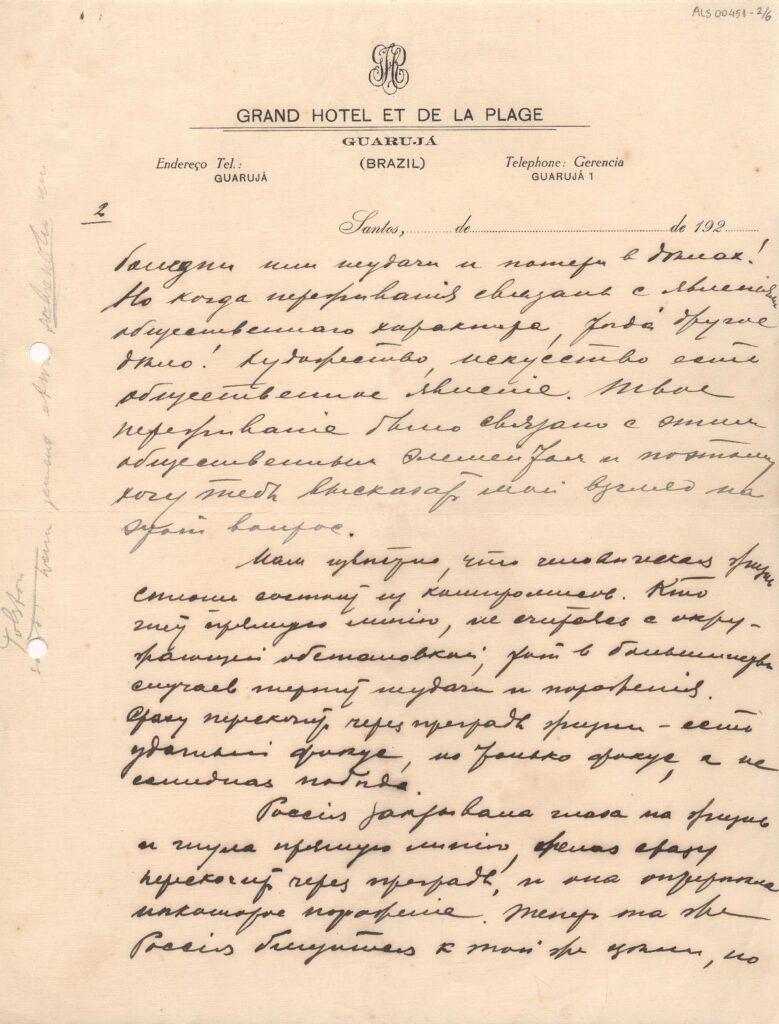 ALS 00451-2/6
GRAND HOTEL ET DE LA PLAGE
GUARUJÁ
(BRAZIL)
Endereço Tel.:
GUARUJÁ
Telephone: Gerencia
GUARUJÁ 1
2
Santos, de de 192
болезни или неудачи и потери в делах!
Но когда переживания связаны с явлениями
общественного характера, тогда другое
дело! Художество, искусство есть
общественное явление. Твое
переживание было связано с этим
общественным элементом и поэтому
хочу тебе высказать мой взгляд на
этот вопрос.
Нам известно, что человеческая жизнь
сплошь состоит из компромисов. Кто
гнет прямую линию, не считаясь с окру-
жающей обстановкой, тот в большинстве
случаев терпит неудачи и поражения.
Сразу перескочить через преграды жизни – есть
удачный фокус, но только фокус, а не
солидная победа.
Россия закрывала глаза на жизнь
и гнула прямую линию, желая сразу
перескочить через преграды, и она
некоторое поражение. Теперь та же
Россия к той же цели, но